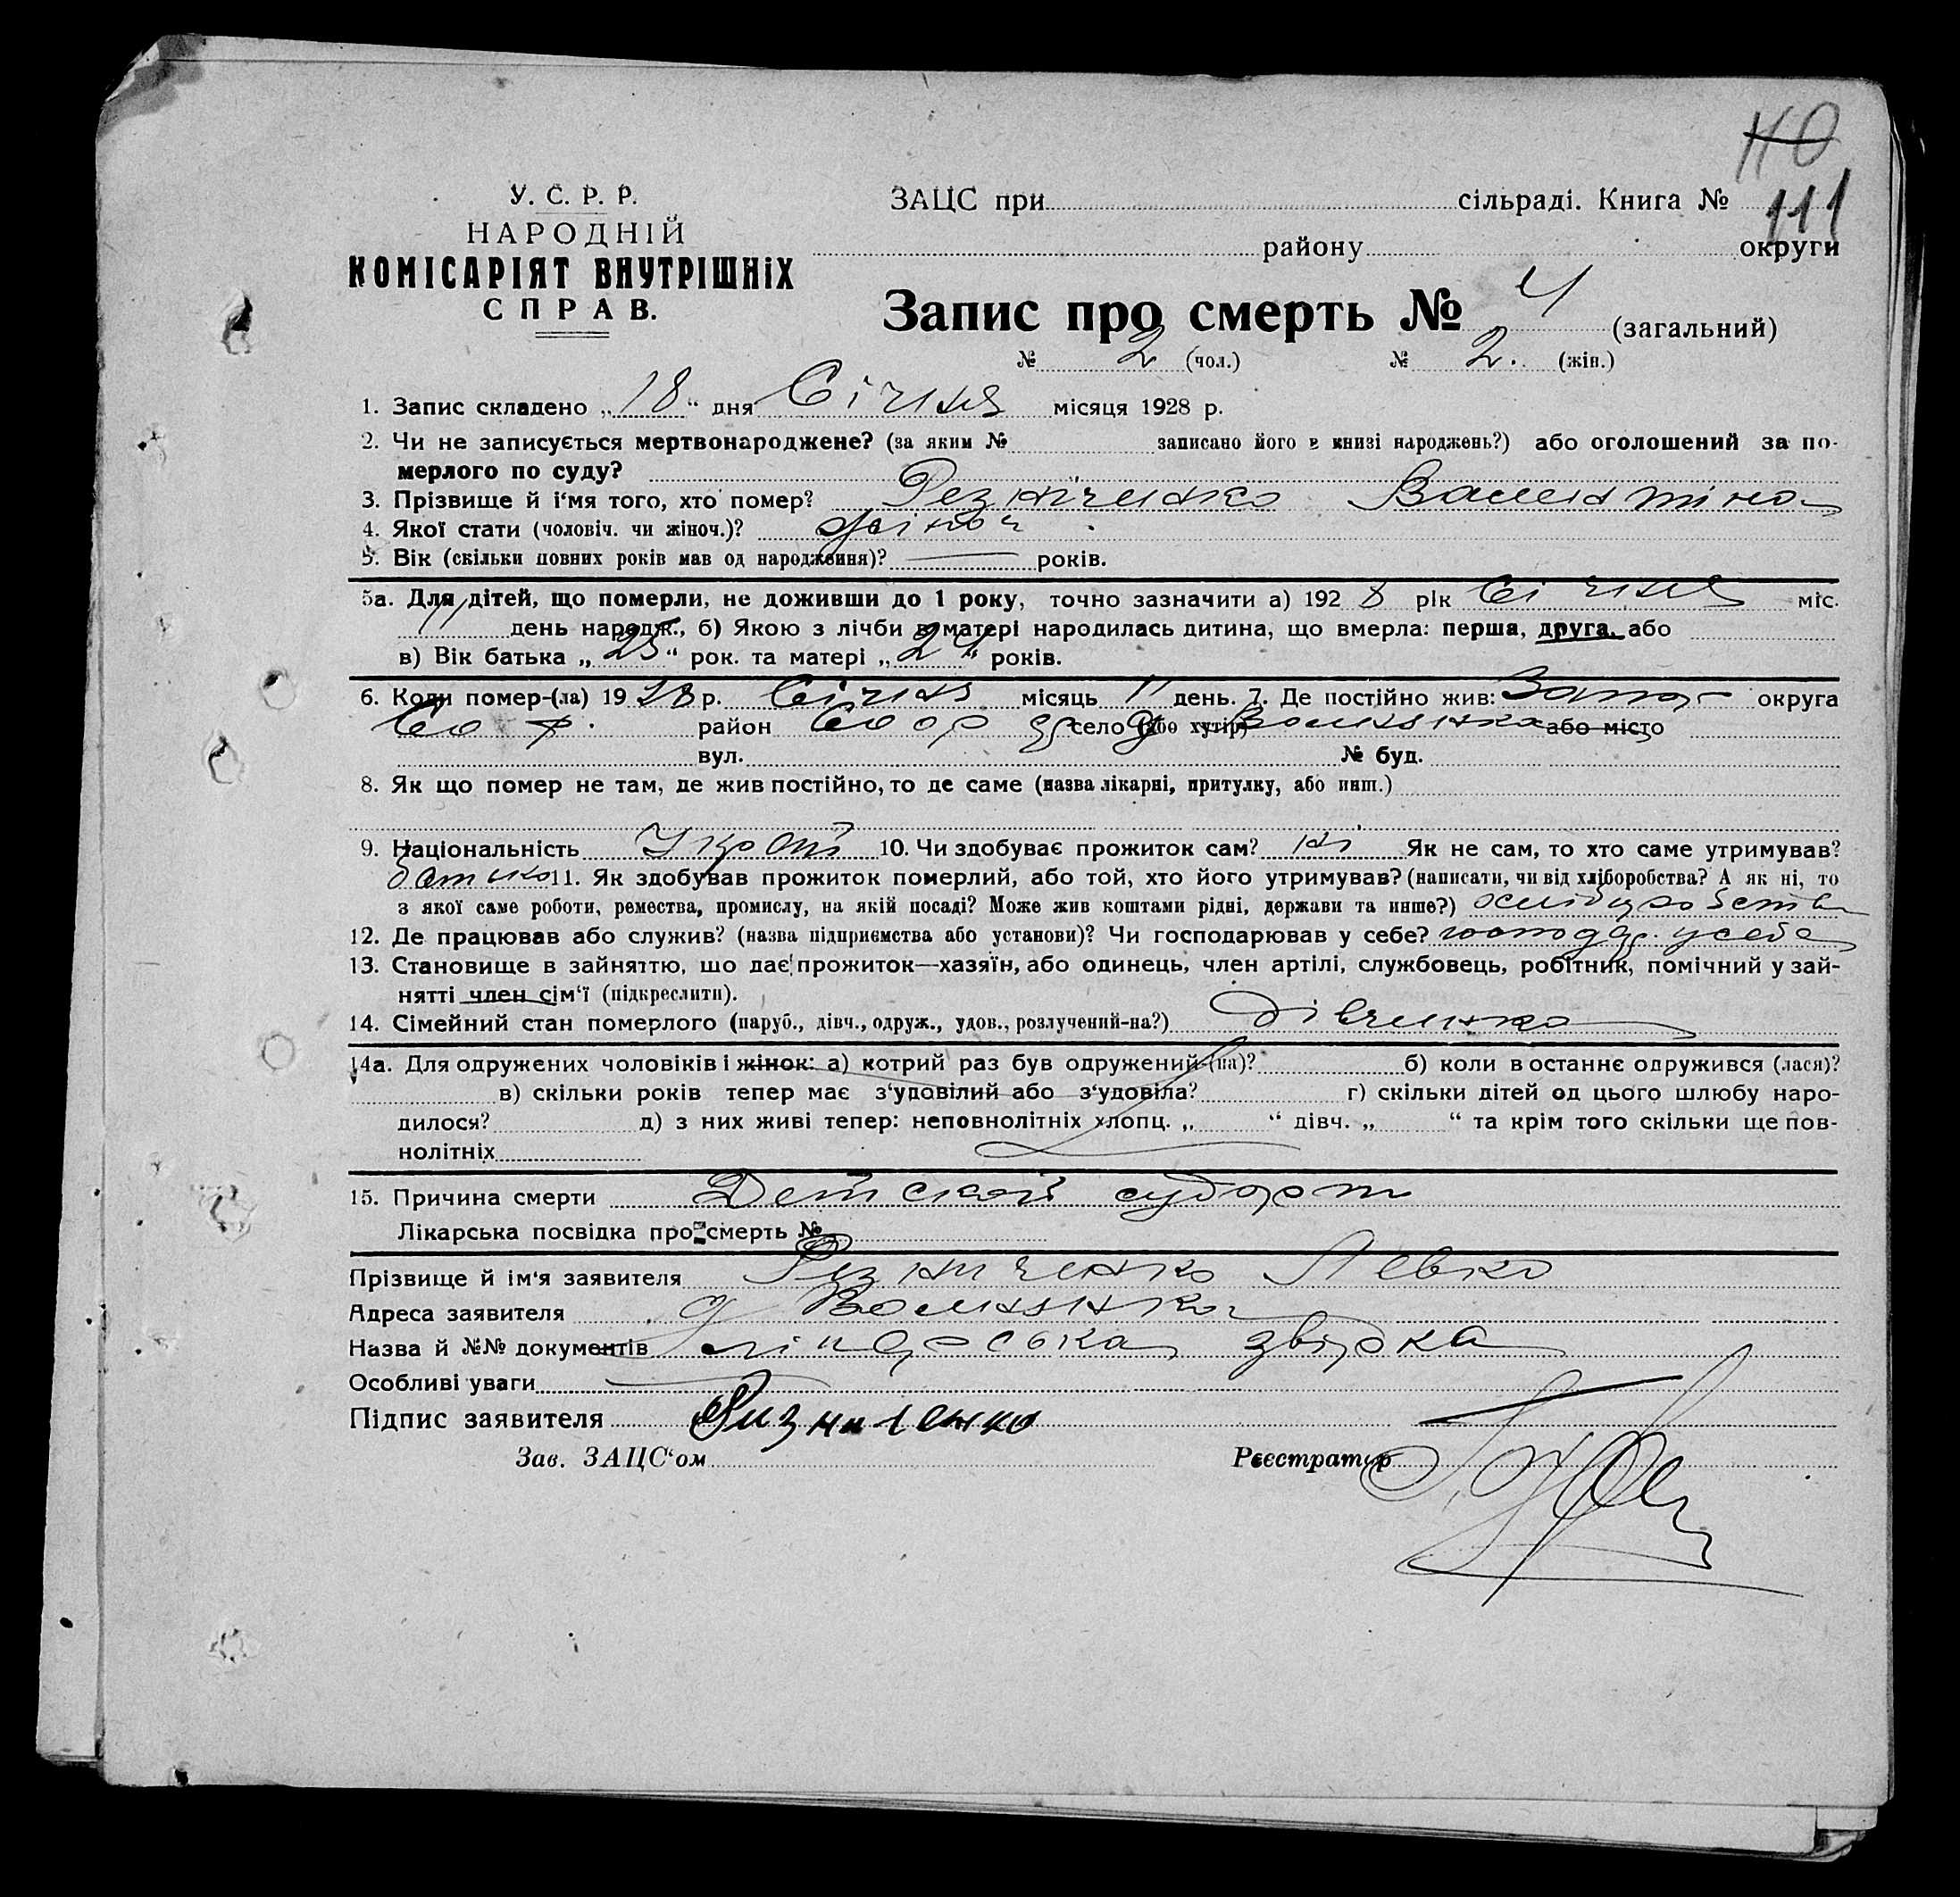 110
111
У. С. Р. Р.
НАРОДНІЙ
КОМІСАРІЯТ ВНУТРІШНІХ
СПРАВ.
ЗАЦС при сільраді. Книга №
району округи
Запис про смерть № 4 (загальний)
№ 2 (чол.) № 2. (жін.)
1. Запис складено „18“ дня Січня місяця 1928 р.
2. Чи не записується мертвонароджене? (за яким № записано його в книзі народжень?) або оголошений за по-
мерлого по суду?
3. Прізвище й і'мя того, хто помер? Резніченко Валентіна
4. Якої стати (чоловіч. чи жіноч.)? жіноч
5. Вік (скільки повних років мав од народження)? — років.
5а. Для дітей, що померли, не доживши до 1 року, точно зазначити а) 1928 рік Січня міс.
11 день народж., б) Якою з лічби в матері народилась дитина, що вмерла: перша, друга, або
в) Вік батька „25“ рок. та матері „24“ років.
6. Коли помер-(ла) 1928 р. Січня місяць 11 день. 7. Де постійно жив: Запор округа
район село (або хутір) Волинянка або місто
вул. № буд.
8. Як що помер не там, де жив постійно, то де саме (назва лікарні, притулку, або инш.)
9. Національність Украї 10. Чи здобуває прожиток сам? ні Як не сам, то хто саме утримував?
батько 11. Як здобував прожиток померлий, або той, хто його утримував? (написати, чи від хліборобства? А як ні, то
з якої саме роботи, ремества, промислу, на якій посаді? Може жив коштами рідні, держави та инше?)
12. Де працював або служив? (назва підприємства або установи)? Чи господарював у себе? господар. у себе
13. Становище в зайняттю, що дає прожиток—хазяїн, або одинець, член артілі, службовець, робітник, помічний у зай-
нятті член сім'ї (підкреслити).
14. Сімейний стан померлого (паруб., дівч., одруж., удов., розлучений-на?) дівчинка
14а. Для одружених чоловіків і жінок: а) котрий раз був одружений-(на)? б) коли в останнє одружився (лася)?
в) скільки років тепер має з'удовілий або з'удовіла? г) скільки дітей од цього шлюбу наро-
дилося? д) з них живі тепер: неповнолітніх хлопц. „ “ дівч. „ “ та крім того скільки ще пов-
нолітніх
15. Причина смерти Детской судорт
Лікарська посвідка про смерть №
Прізвище й ім'я заявителя Резниченко Левко
Адреса заявителя д Волинянка
Назва й №№ документів звірка
Особливі уваги
Підпис заявителя Ризниченко
Зав. ЗАЦС'ом Реєстратор